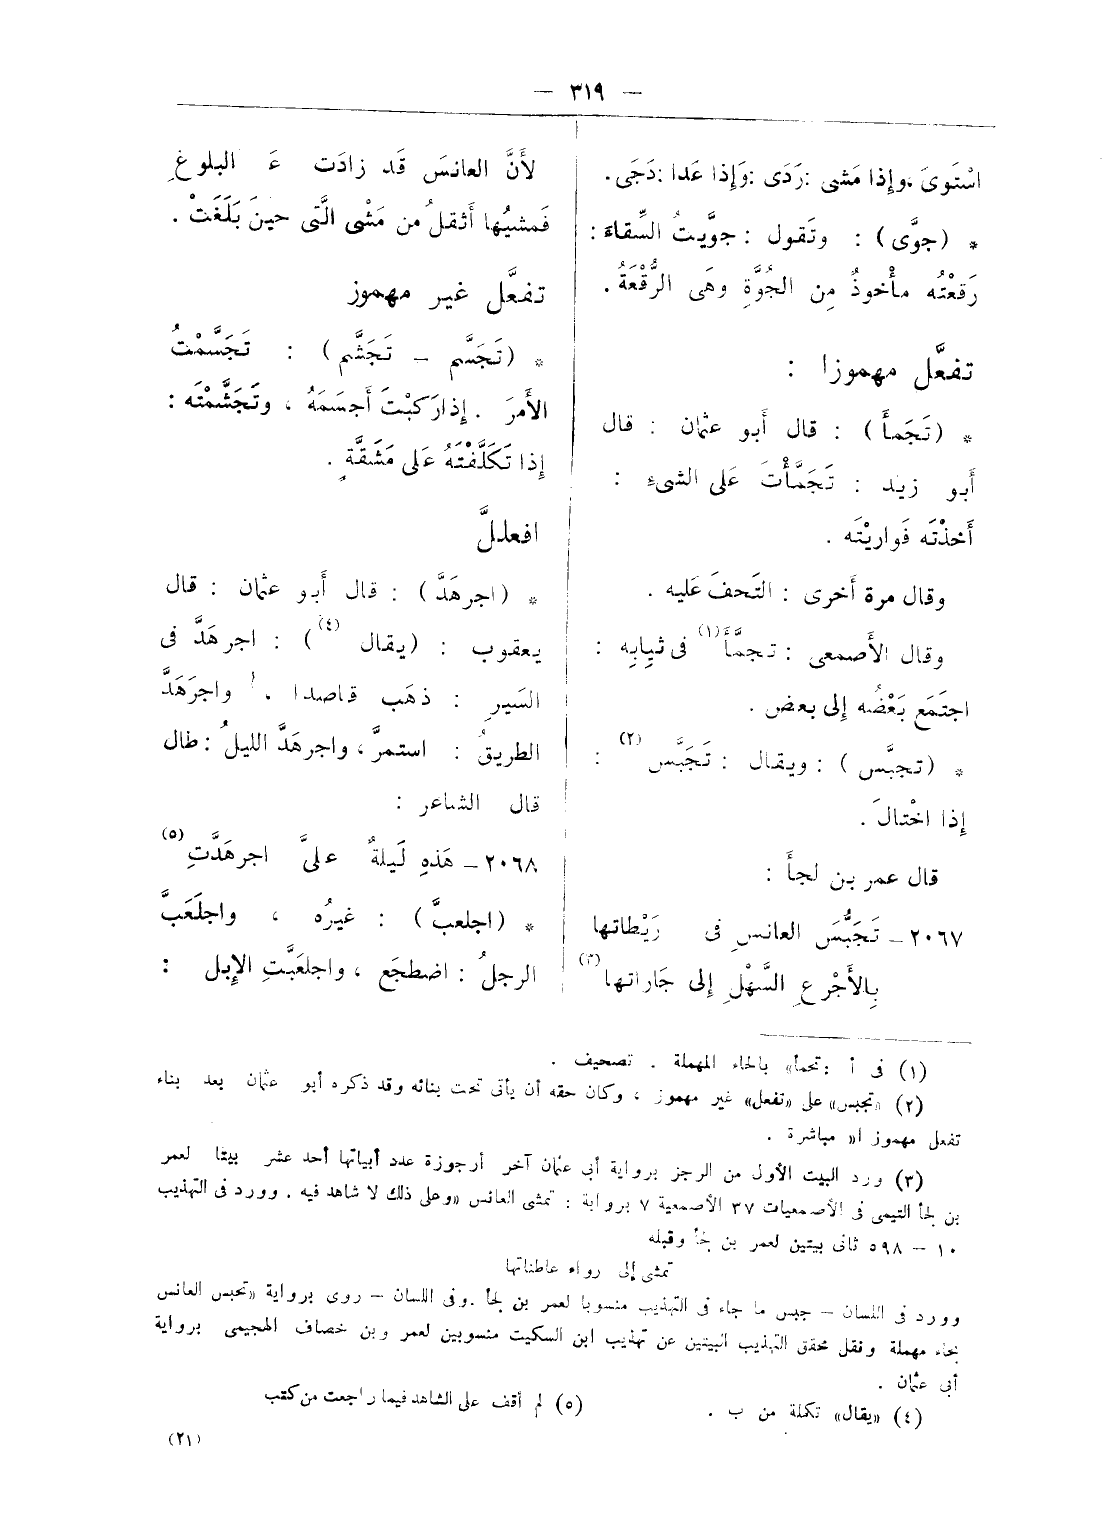 — ٣١٩ —
اسْتَوىَ ، وإِذا مَشى : رَدَى : وَإِذا عَدا : دَجَى .
* (جوَّى) : وتَقول : جوَّيتُ السِّقاءَ :
رَقعْتُه مأْخوذٌ مِن الجُوَّةِ وهَى الرُّقْعَةُ .
تفعَّل مهموزا :
* (تَجَمأَ) : قال أَبو عثمان : قال
أَبو زيد : تَجَمَّأْتَ عَلى الشىءِ :
أَخذْتَه فَواريْتَه .
وقال مرة أَخرى : التَحفَ عَليه .
وقال الأَصمعى : تجمَّأَ (١) فى ثيابِه :
اجتَمَع بَعْضُه إِلى بعض .
* (تجبَّس) : ويقال : تَجَبَّس (٢) :
إِذا اخْتالَ .
قال عمر بن لجأَ :
٢٠٦٧ – تَجَبُّسَ العانسِ فى رَيْطاتها
بِالأَجْرعِ السَّهْلِ إِلى جَاراتها (٣)
لأَنَّ العانسَ قَد زادَت عَ البلوغِ
فَمشيُها أَثقلُ من مَشْى الَّتى حينَ بَلَغَتْ .
تفعَّل غير مهموز
* (تَجَسَّم – تَجَشَّم) : تَجَسَّمْتُ
الأَمرَ . إِذا ركبْتَ أَجسَمَهُ ، وتَجَشَّمْتَه :
إِذا تَكَلَّفْتَهُ عَلى مَشَقَّةٍ .
افعللَّ
* (اجرهَدَّ) : قال أَبو عثمان : قال
يعقوب : (يقال (٤)) : اجرهَدَّ فى
السَيرِ : ذهَب قاصدا . واجرَهَدَّ
الطريقُ : استمرَّ ، واجرهَدَّ الليلُ : طال
قال الشاعر :
٢٠٦٨ – هَذهِ لَيلةٌ علىَّ اجرهَدَّتِ (٥)
* (اجلعبَّ) : غيرُه ، واجلَعَبَّ
الرجلُ : اضطجَع ، واجلعَبَّتِ الإِبل :
(١) فى أ : تحمأ» بالحاء المهملة . تصحيف .
(٢) «تجبس» على «تفعل» غير مهموز ، وكان حقه أن يأتى تحت بنائه وقد ذكره أبو عثمان بعد بناء
تفعل مهموز ا» مباشرة .
(٣) ورد البيت الأول من الرجز برواية أبى عثمان آخر أرجوزة عدد أبياتها أحد عشر بيتا لعمر
بن لجأ التيمى فى الأصمعيات ٣٧ الأصمعية ٧ برواية : تمشى العانس «وعلى ذلك لا شاهد فيه . وورد فى التهذيب
١٠ – ٥٩٨ ثانى بيتين لعمر بن لجأ وقبله
تمشى إلى رواء عاطناتها
وورد فى اللسان – جبس ما جاء فى التهذيب منسوبا لعمر بن لجأ . وفى اللسان – روى برواية «تحبس العانس
بحاء مهملة ونقل محقق التهذيب البيتين عن تهذيب ابن السكيت منسوبين لعمر وبن خصاف الهجيمى برواية
أبى عثمان .
(٤) «يقال» تكملة من ب .
(٥) لم أقف على الشاهد فيما راجعت من كتب
(٢١)